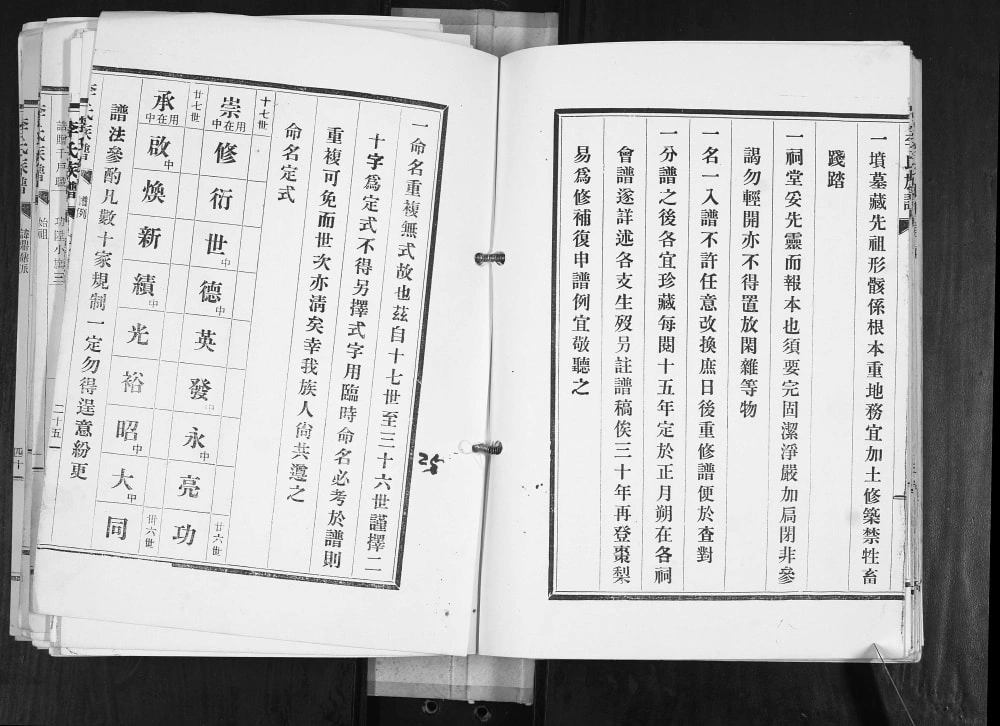 一墳墓藏先祖形骸係根本重地務宜加土修築禁牲畜
踐踏
一祠堂妥先靈而報本也須要完固潔淨嚴加扃閉非參
謁勿輕開亦不得置放閑雜等物
一名一入譜不許任意改換庶日後重修譜便於查對
一分譜之後各宜珍藏每閱十五年定於正月朔在各祠
會譜遂詳述各支生歿另註譜稿俟三十年再登棗梨
易爲修補復申譜例宜敬聽之
一命名重複無式故也茲自十七世至三十六世謹擇二
十字爲定式不得另擇式字用臨時命名必考於譜則
重複可免而世次亦清矣幸我族人尙共遵之
命名定式
十七世
崇
用在中
修
衍
世
中
德
中
英
發
中
永
中
亮
功
廿六世
廿七世
承
用在中
啟
中
煥
新
績
中
光
裕
昭
中
大
中
同
卅六世
譜法參酌凡數十家規制一定勿得逞意紛更
李氏族譜
譜例
二十五
25
李氏族譜
始祖
四十
李氏族譜